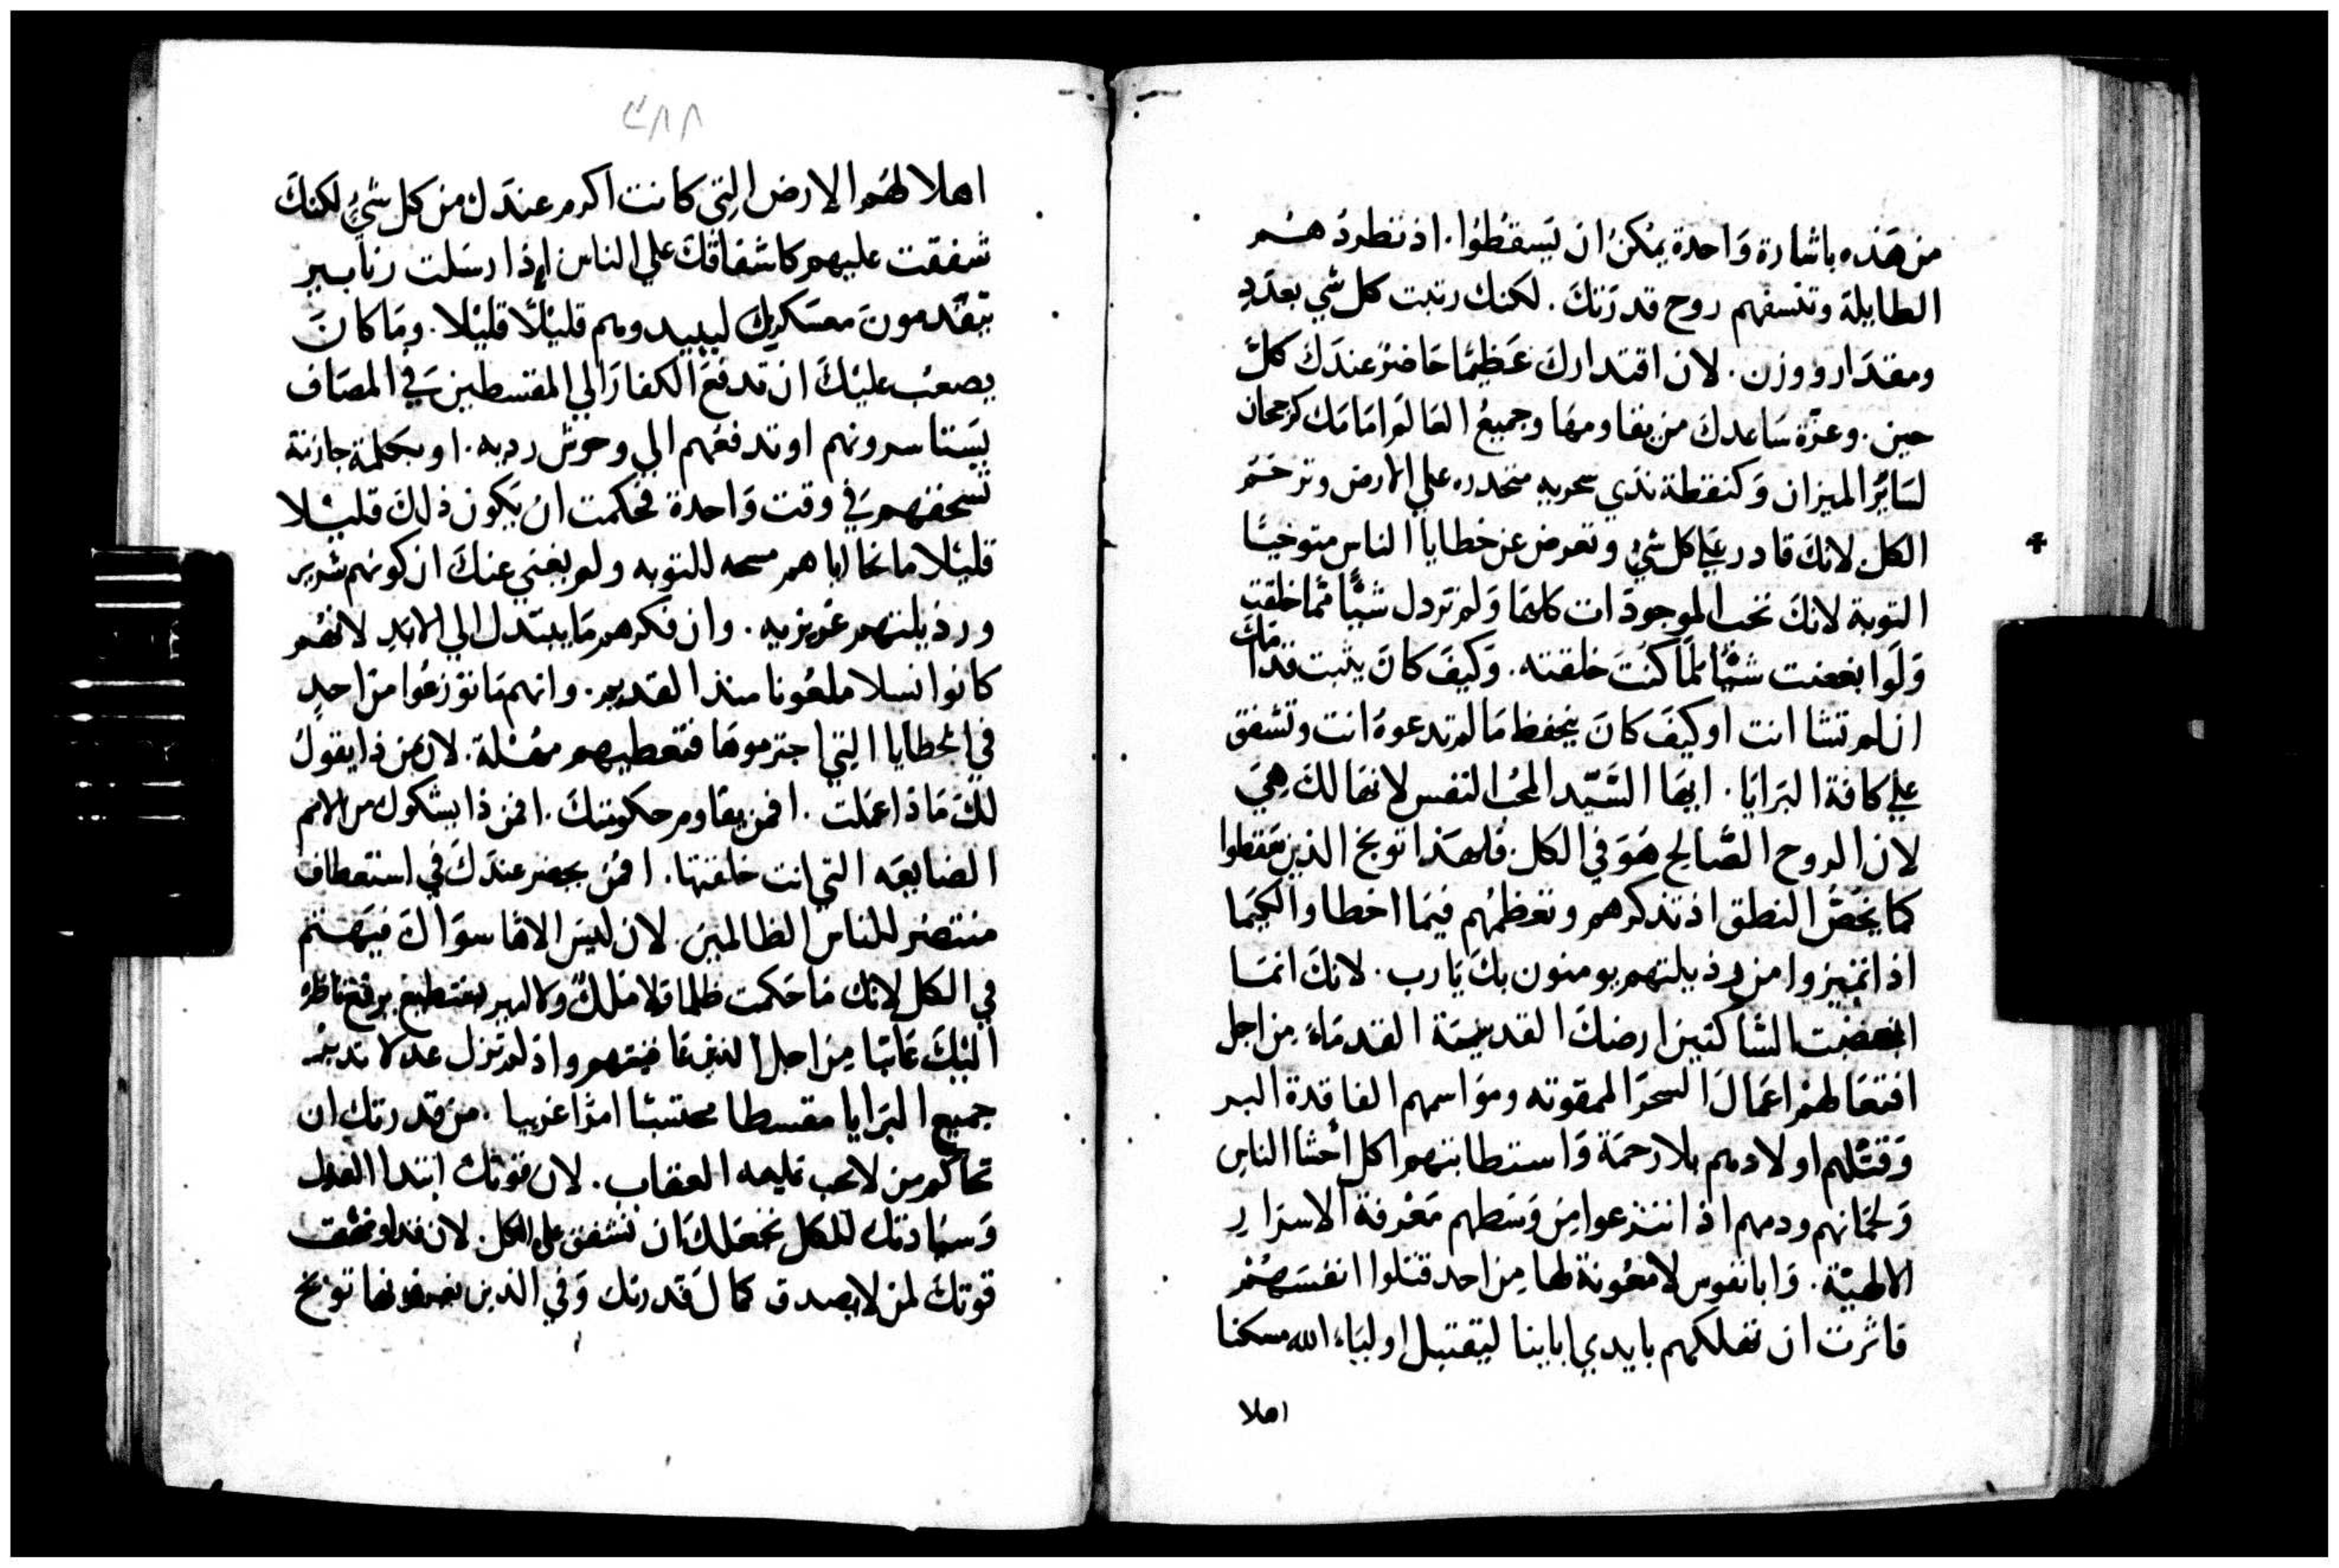 من هذه باشارة واحدة يمكن ان يسقطوا. اذ تطرد هم
الطايلة وتنسفهم روح قدرتك. لكنك رتبت كل شي بعدد
ومقدار ووزن. لان اقتدارك عظيمًا حاضر عندك كل
حين. وعزة ساعدك من يقاومها وجميع العالم امامك كرجحان
لساير الميزان وكنقطة ندي سحريه منحدره علي الارض وترحم
الكل لانك قادر علي كل شي وتعرض عن خطايا الناس متوخيًا
التوبة لانك تحب الموجودات كلها ولم تردل شيًا مما خلقت
ولو ابغضت شيًا لما كنت خلقته. وكيف كان يثبت قدامك
ان لم تشا انت او كيف كان ينحفظ ما لم تدعوه انت وتشفق
علي كافة البرايا. ايها السيد المحب النفس لانها لك هي
لان الروح الصالح هو في الكل. فلهذا توبخ الذين سقطوا
كما يخص النطق اذ تذكرهم وتعظهم فيما اخطاوا لكيما
اذا تميزوا من رذيلتهم يومنون بك يارب. لانك انما
ابغضت الساكنين ارضك القديسة القدماء من اجل
افتعالهم اعمال السحر الممقوته ومواسمهم الفاقدة البر
وقتلهم اولادهم بلا رحمة واستطابتهم اكل احشا الناس
ولحمانهم ودمهم اذ انتزعوا من وسطهم معرفة الاسرار
الالهية. وابا نفوس لا معونة لها من احد قتلوا انفسهم
فاثرت ان تهلكهم بايدي اباينا ليقتبل اولياء الله مسكنا
اهلا
٣٨٨
اهلا لهم الارض التي كانت اكرم عندك من كل شي لكنك
شفقت عليهم كاشفاقك علي الناس اذا رسلت زنابير
يتقدمون معسكريك ليبيدوهم قليلًا قليلا. وما كان
يصعب عليك ان تدفع الكفار الي المقسطين في المصاف
يستاسرونهم او تدفعهم الي وحوش رديه. او بكلمة جازمة
تسحقهم في وقت واحدة فحكمت ان يكون ذلك قليلا
قليلا مانحا اياهم فسحه للتوبه ولم يغبي عنك ان كونهم شرير
ورذيلتهم غريزيه. وان فكرهم ما يتبدل الي الابد لانهم
كانوا نسلا ملعونا منذ القديم. وانهم ما توزعوا من احد
في الخطايا التي اجترموها فتعطيهم مهلة. لان من ذا يقول
لك ماذا عملت. افمن يقاوم حكومتك. افمن ذا يشكوك من الامم
الضايعه التي انت خلقتها. افمن يحضر عندك في استعطاف
منتصر للناس الظالمين. لان ليس الاها سواك فيهتم
في الكل لانك ما حكمت ظلما ولا ملك ولا امير يستطيع يرفع ناظره
اليك عاتبا من اجل الذين عاقبتهم واذ لم تزل عدلا تدبر
جميع البرايا مقسطا محتسبًا امرًا غريبا. من قدرتك ان
تحاكم من لا يجب عليه العقاب. لان قوتك ابتدا العدل
وسيادتك للكل تجعلك ان تشفق علي الكل. لان
قوتك لمن لا يصدق كمال قدرتك وفي الذين يعرفونها توبخ